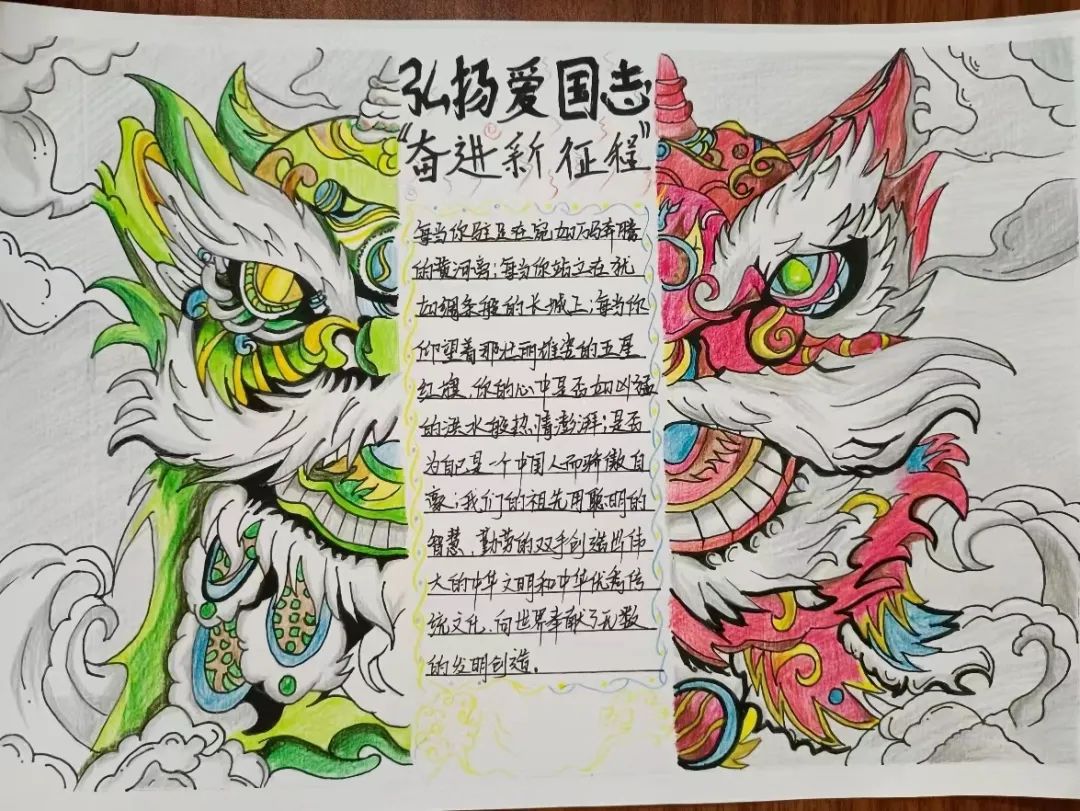 弘扬爱国志
“奋进新征程”
每当你驻足在宛如万马奔腾
的黄河旁;每当你站立在犹
如绸条般的长城上;每当你
仰望着那壮丽雄姿的五星
红旗,你的心中是否如凶猛
的洪水般热情澎湃;是否
为自己是一个中国人而骄傲自
豪;我们的祖先用聪明的
智慧、勤劳的双手创造出伟
大的中华文明和中华优秀传
统文化、向世界奉献了无数
的发明创造.